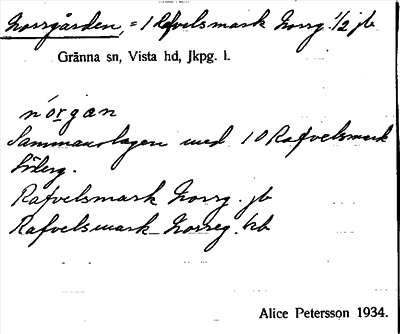 Norrgården, = 1 Rafvelsmark Norrg. 1/2 jb
Gränna sn, Vista hd, Jkpg. l.
nòrgan
Sammanslagen med 10 Rafvelsmark
Rafvelsmark Norrg. jb
Rafvelsmark Norreg. hb
Alice Petersson 1934.